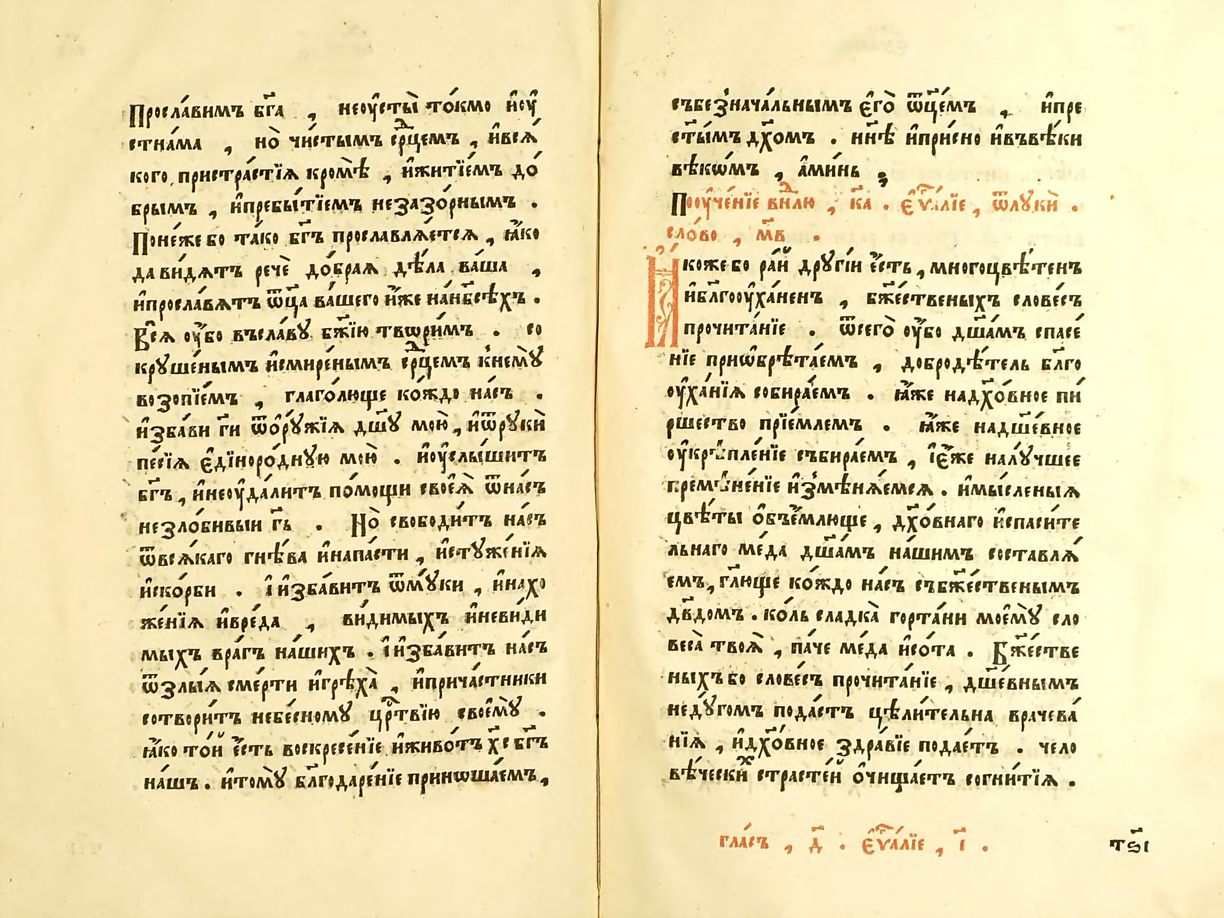 Просла́вимъ бг҃а , неоу҆сты̀ то́кмо и҆оу҆
стна́ма , но̀ чи́стымъ ср҃дцемъ , и҆вся́
кого пристра́стїѧ кромѣ̀ , и҆житїе́мъ до́
брымъ , и҆пребы́тїемъ незазо́рнымъ .
Поне́же бо та́ко бг҃ъ прославлѧ́етсѧ , ꙗ҆́ко
да ви́дѧтъ речѐ до́браѧ дѣ́ла ва́ша ,
и҆просла́вѧтъ ѿц҃а ва́шего и҆́же на́нб҃сѣхъ .
Всѧ̀ оу҆́бо въсла́вꙋ бж҃їю твѡри́мъ . со
крꙋше́нымъ и҆смире́нымъ ср҃дцемъ к̾немꙋ̀
возопїе́мъ , глаго́люще ко́ждо на́съ .
и҆зба́ви гд҃и ѿо҆рꙋ́жїѧ дш҃ꙋ мою̀ , и҆ѿрꙋкѝ
пе́сїѧ є҆дїноро́днꙋю мою̀ . и҆оу҆слы́шитъ
бг҃ъ , и҆неоу҆дали́тъ по́мощи своеѧ̀ ѿна́съ
незло́бивыи гд҃ь . Но̀ свободи́тъ на́съ
ѿвсѧ́каго гнѣ́ва и҆напа́сти , и҆стꙋже́нїѧ
и҆ско́рби . і҆и҆зба́витъ ѿмꙋ́ки , и҆нахо
же́нїѧ и҆вре́да , ви́димыхъ и҆неви́ди
мыхъ вра́гъ на́шихъ . і҆и҆зба́витъ на́съ
ѿзлы́ѧ сме́рти и҆грѣха̀ , и҆прича́стники
сотвори́тъ небе́сномꙋ црⷭ҇твїю своемꙋ̀ .
ꙗ҆́ко то́й є҆́сть воскресе́нїе и҆живо́тъ хс҃ бг҃ъ
на́шъ . и҆томꙋ̀ бл҃годаре́нїе приноша́емъ ,
събезнача́льнымъ є҆го̀ ѿц҃емъ , и҆пре
ст҃ы́мъ дх҃омъ . ин҃ѣ и҆при́сно и҆въвѣ́ки
вѣко́мъ , а҆ми́нь
Пооу҆че́нїе внⷣлю , ка҃ . є҆ѵⷢ҇лїе , ѿлꙋкѝ .
сло́во , мв҃ .
Ꙗкоже бо ра́й дрꙋгі́и є҆́сть , многоцвѣ́тенъ
и҆бл҃гооу҆ха́ненъ , бж҃е́ственыхъ слове́съ
прочита́нїе . ѿсего̀ оу҆́бо дш҃а́мъ спасе́
нїе приѡбрѣта́емъ , добродѣ́тель бл҃го
оу҆ха́нїѧ собира́емъ . ꙗ҆́же надх҃о́вное пи́
ршество прїе́млемъ . ꙗ҆́же надш҃е́вное
оу҆крѣпле́нїе събира́емъ , і҆є҆́же налꙋ́чшее
премѣне́нїе и҆змѣнѧ́емсѧ . и҆мы́сленыѧ
цвѣ́ты о҆б̾е́млюще , дх҃о́внаго и҆спаси́те
льнаго ме́да дш҃а́мъ на́шимъ составлѧ́
емъ , гл҃юще ко́ждо на́съ събж҃е́ственымъ
дв҃домъ . ко́ль сладка̀ горта́ни моемꙋ̀ сло
веса̀ твоѧ̀ , па́че ме́да и҆со́та . Бж҃е́стве
ныхъ бо слове́съ прочита́нїе , дш҃е́внымъ
недꙋ́гомъ пода́стъ цѣли́тельна врачева́
нїѧ , и҆дх҃о́вное здра́вїе подае́тъ . чело
вѣ́ческиⷯ страсте́й о҆чища́етъ согни́тїѧ .
гла́съ , д҃ . є҆ѵⷢ҇алїе , і҃ .
тѕ҃і